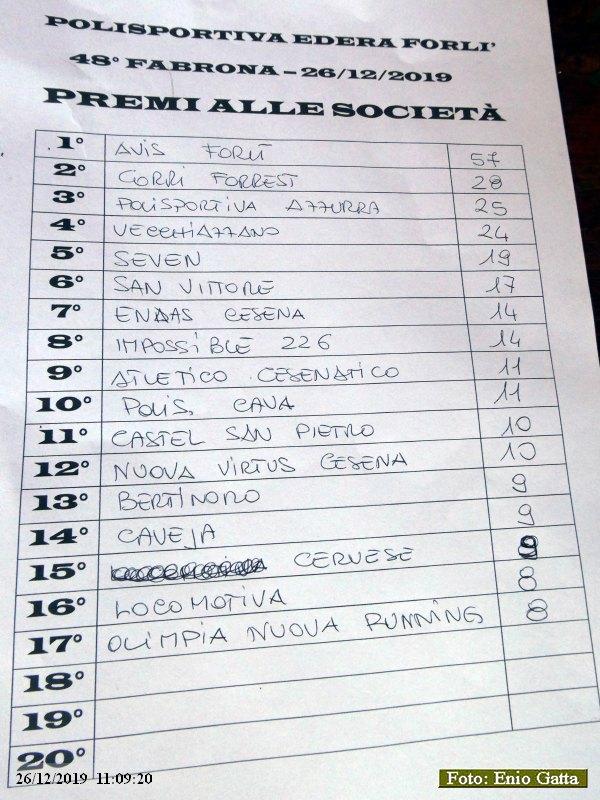 POLISPORTIVA EDERA FORLI'
48° FABRONA – 26/12/2019
PREMI ALLE SOCIETÀ
1° AVIS FORLÌ 57
2° CORRI FORREST 28
3° POLISPORTIVA AZZURRA 25
4° VECCHIAZZANO 24
5° SEVEN 19
6° SAN VITTORE 17
7° ENDAS CESENA 14
8° IMPOSSIBLE 226 14
9° ATLETICO CESENATICO 11
10° POLIS. CAVA 11
11° CASTEL SAN PIETRO 10
12° NUOVA VIRTUS CESENA 10
13° BERTINORO 9
14° CAVEJA 9
15° CERVESE 9
16° LOCOMOTIVA 8
17° OLIMPIA NUOVA RUNNING 8
18°
19°
20°
26/12/2019 11:09:20
Foto: Enio Gatta